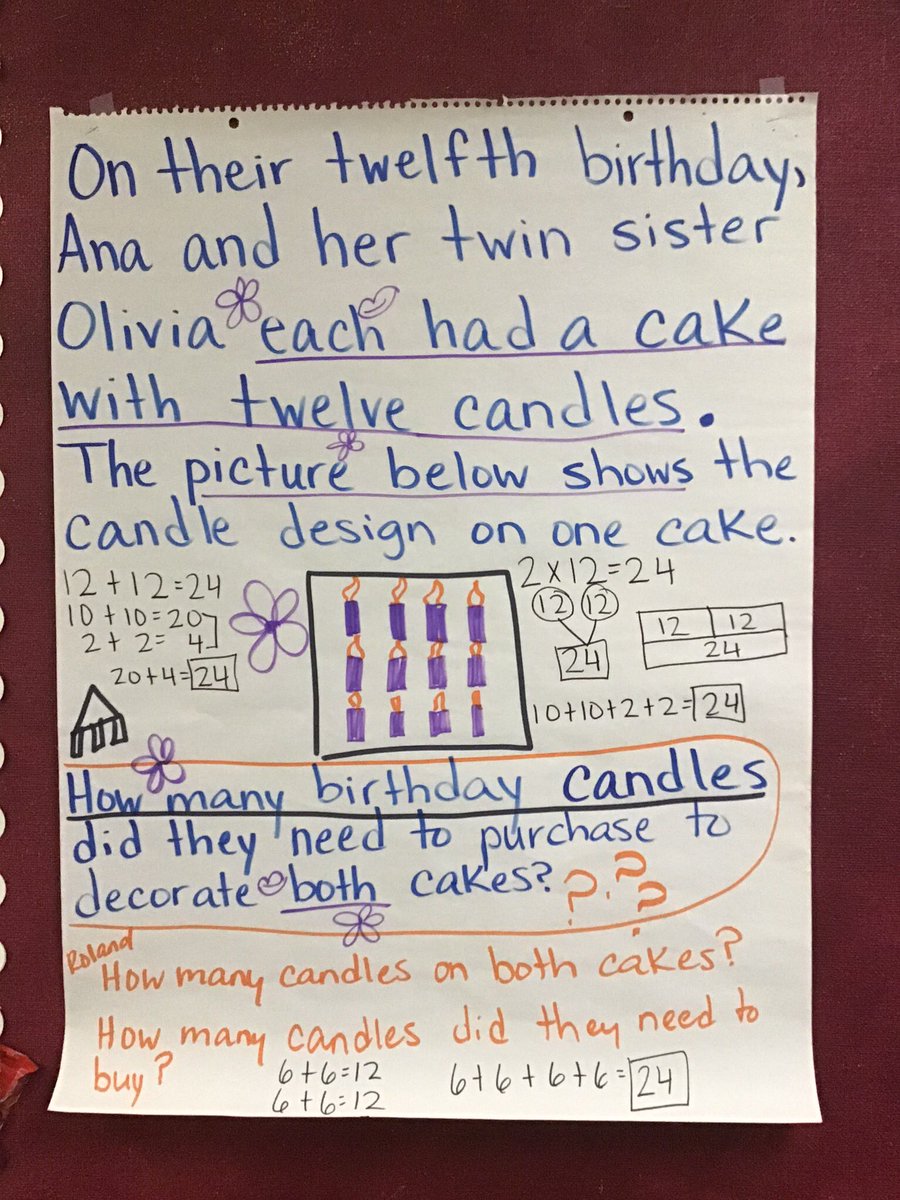 On their twelfth birthday,
Ana and her twin sister
Olivia each had a cake
with twelve candles.
The picture below shows the
candle design on one cake.
12 + 12 = 24
10 + 10 = 20
2 + 2 = 4
20 + 4 = 24
2 x 12 = 24
12 12
24
12 12
24
10 + 10 + 2 + 2 = 24
How many birthday candles
did they need to purchase to
decorate both cakes? ? . ? ?
Roland
How many candles on both cakes?
How many candles did they need to
buy?
6 + 6 = 12
6 + 6 = 12
6 + 6 + 6 + 6 = 24